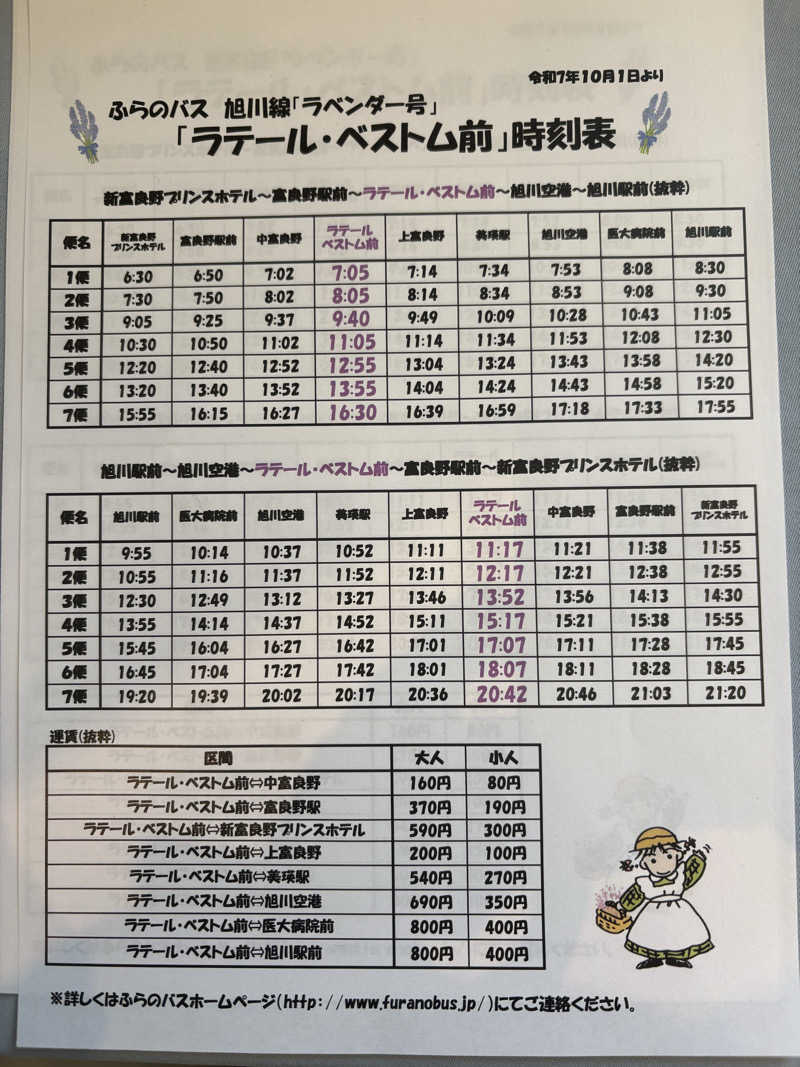 令和7年10月1日より
ふらのバス 旭川線「ラベンダー号」
「ラテール・ベストム前」時刻表
新富良野プリンスホテル～富良野駅前～ラテール・ベストム前～旭川空港～旭川駅前(抜粋)
便名 新富良野プリンスホテル 富良野駅前 中富良野 ラテールベストム前 上富良野 美瑛駅 旭川空港 医大病院前 旭川駅前
1便 6:30 6:50 7:02 7:05 7:14 7:34 7:53 8:08 8:30
2便 7:30 7:50 8:02 8:05 8:14 8:34 8:53 9:08 9:30
3便 9:05 9:25 9:37 9:40 9:49 10:09 10:28 10:43 11:05
4便 10:30 10:50 11:02 11:05 11:14 11:34 11:53 12:08 12:30
5便 12:20 12:40 12:52 12:55 13:04 13:24 13:43 13:58 14:20
6便 13:20 13:40 13:52 13:55 14:04 14:24 14:43 14:58 15:20
7便 15:55 16:15 16:27 16:30 16:39 16:59 17:18 17:33 17:55
旭川駅前～旭川空港～ラテール・ベストム前～富良野駅前～新富良野プリンスホテル(抜粋)
便名 旭川駅前 医大病院前 旭川空港 美瑛駅 上富良野 ラテールベストム前 中富良野 富良野駅前 新富良野プリンスホテル
1便 9:55 10:14 10:37 10:52 11:11 11:17 11:21 11:38 11:55
2便 10:55 11:16 11:37 11:52 12:11 12:17 12:21 12:38 12:55
3便 12:30 12:49 13:12 13:27 13:46 13:52 13:56 14:13 14:30
4便 13:55 14:14 14:37 14:52 15:11 15:17 15:21 15:38 15:55
5便 15:45 16:04 16:27 16:42 17:01 17:07 17:11 17:28 17:45
6便 16:45 17:04 17:27 17:42 18:01 18:07 18:11 18:28 18:45
7便 19:20 19:39 20:02 20:17 20:36 20:42 20:46 21:03 21:20
運賃(抜粋)
区間 大人 小人
ラテール・ベストム前⇔中富良野 160円 80円
ラテール・ベストム前⇔富良野駅 370円 190円
ラテール・ベストム前⇔新富良野プリンスホテル 590円 300円
ラテール・ベストム前⇔上富良野 200円 100円
ラテール・ベストム前⇔美瑛駅 540円 270円
ラテール・ベストム前⇔旭川空港 690円 350円
ラテール・ベストム前⇔医大病院前 800円 400円
ラテール・ベストム前⇔旭川駅前 800円 400円
※詳しくはふらのバスホームページ(http://www.furanobus.jp/)にてご連絡ください。